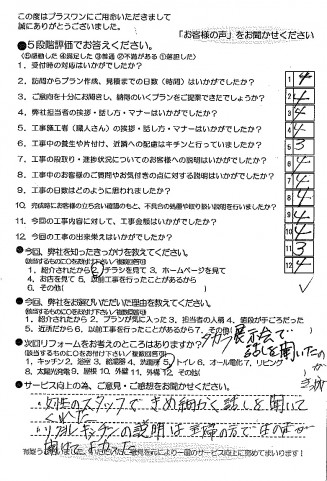 この度はプラスワンにご用命いただきまして
誠にありがとうございました。
「お客様の声」をお聞かせください
●5段階評価でお答えください。
(⑤感動した ④満足した ③普通 ②不満がある ①落胆した)
1．受付時の対応はいかがでしたか？ 1 4
2．訪問からプラン作成、見積までの日数（時間）はいかがでしたか？ 2 4
3．ご意向を十分にお聞きし、納得のいくプランをご提案できたでしょうか？ 3 4
4．弊社担当者の挨拶・話し方・マナーはいかがでしたか？ 4 4
5．工事施工者（職人さん）の挨拶・話し方・マナーはいかがでしたか？ 5 4
6．工事中の養生や片付け、近隣への配慮はキチンと行っていましたか？ 6 3
7．工事の段取り・進捗状況についてのお客様への説明はいかがでしたか？ 7 4
8．工事中のお客様のご質問やお気付きの点に対する説明はいかがでしたか？ 8 4
9．工事の日数はどのように思われましたか？ 9 4
10．完成時にお客様の立ち会い確認のもと、不具合の処置や取り扱い説明を行いましたか？ 10 4
11．今回の工事内容に対して、工事金額はいかがでしたか？ 11 3
12．今回の工事の出来栄えはいかがでしたか？ 12 4
●今回、弊社を知ったきっかけを教えてください。
(該当するものに○をお付け下さい／複数回答可)
1．紹介されたから 2．チラシを見て 3．ホームページを見て
4．お店を見て 5．以前工事を行ったことがあるから
6．その他(
●今回、弊社をお選びいただいた理由を教えてください。
(該当するものに○をお付け下さい／複数回答可)
1．紹介されたから 2．プランが気に入った 3．担当者の人柄 4．値段が手ごろだった
5．近所だから 6．以前工事を行ったことがあるから 7．その他( タカラ展示会で
話しを聞いたの
●次回リフォームをお考えのところはありますか？
(該当するものに○をお付け下さい／複数回答可)
1．キッチン 2．浴室 3．給湯器 4．洗面所 5．トイレ 6．オール電化 7．リビング
8．太陽光発電 9．屋根 10．外壁 11．外構 12．その他(
●サービス向上の為、ご意見・ご感想をお聞かせください
・女性のスタッフできめ細かく話しを聞いて
くれた
・システムキッチンの説明は主婦の方で
聞けてよかった
有難うございました。いただいたご意見を元により一層のサービス向上に努めてまいります！